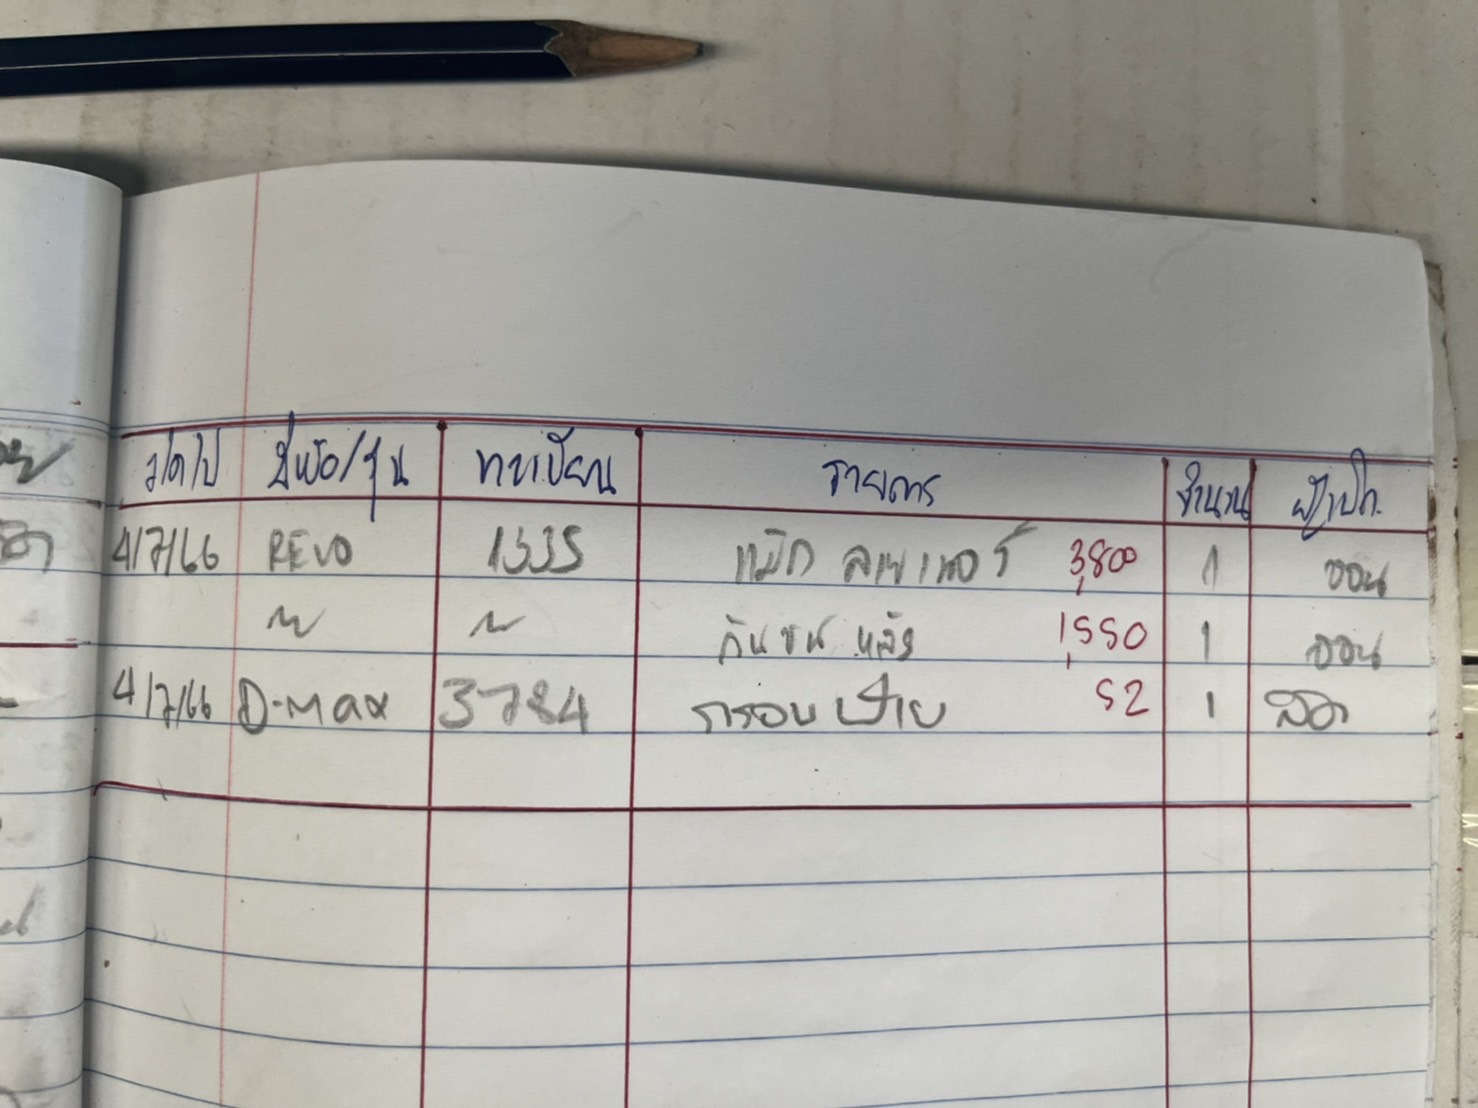 ว/ด/ป ยี่ห้อ/รุ่น ทะเบียน รายการ จำนวน ผู้เบิก
4/7/66 REVO 1335 แม็ก ลายเนอร์ 3,800 1 ออน
〃 〃 กันชน หลัง 1,550 1 ออน
4/7/66 D-Max 3784 กรอบป้าย 52 1